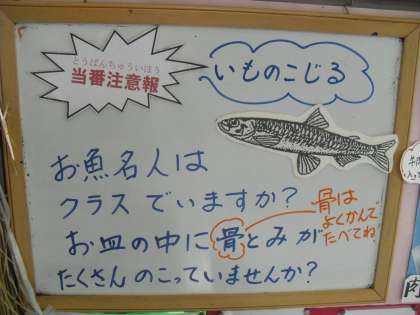 とうばんちゅういほう
当番注意報
いものこじる
お魚名人は
クラスでいますか?
お皿の中に骨とみが
たくさんのこっていませんか?
骨は
よくかんで
たべてね